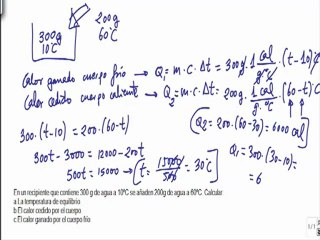 200g
60ºC
300g
10ºC
Calor ganado cuerpo frío → Q₁ = m·c·Δt = 300g · 1 cal/g·ºC · (t-10)ºC
Calor cedido cuerpo caliente → Q₂ = m·c·Δt = 200g · 1 cal/g·ºC · (60-t)ºC
300·(t-10) = 200·(60-t)
Q₂ = 200·(60-30) = 6000 cal
300t - 3000 = 12000 - 200t
Q₁ = 300·(30-10) =
500t = 15000 → t = 15000/500 = 30ºC
= 6
En un recipiente que contiene 300 g de agua a 10ºC se añaden 200g de agua a 60ºC. Calcular
a La temperatura de equilibrio
b El calor cedido por el cuerpo
c El calor ganado por el cuerpo frío